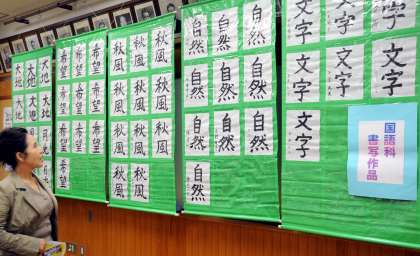 大地 大地 大地
大地 大地 大地
大地 大地
希望 希望 希望
希望 希望 希望
希望 希望 希望
希望
秋風 秋風 秋風
秋風 秋風 秋風
秋風 秋風 秋風
秋風 秋風
自然 自然 自然
自然 自然 自然
自然 自然 自然
自然
文字 文字 文字
文字 文字 文字
文字
国語科
書写作品